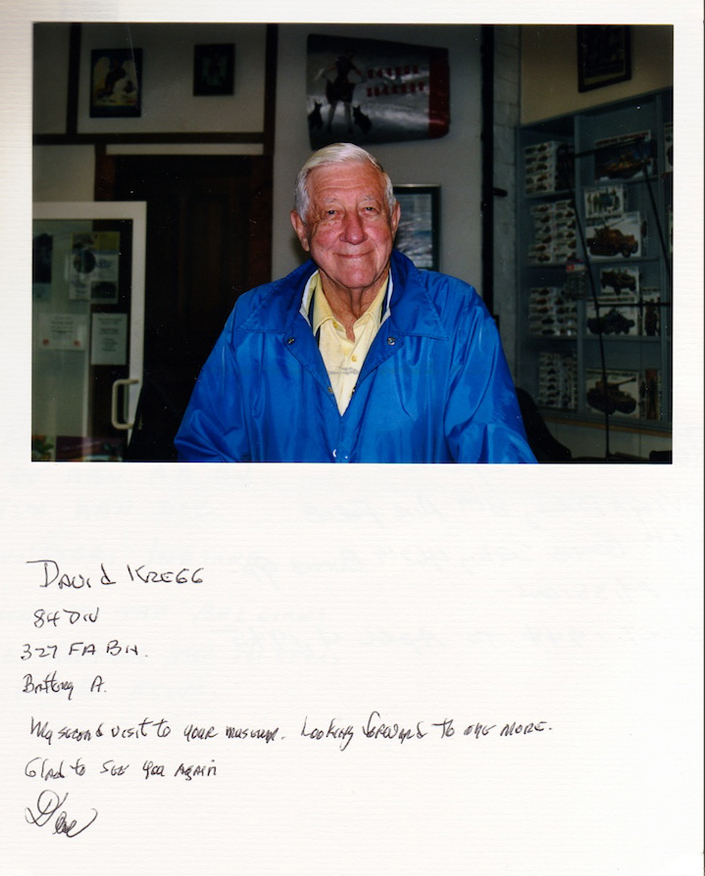 DAVID KREGG
84 DIV
327 FA BN.
Battery A.
My second visit to your museum. Looking forward to one more.
Glad to see you again
Dave